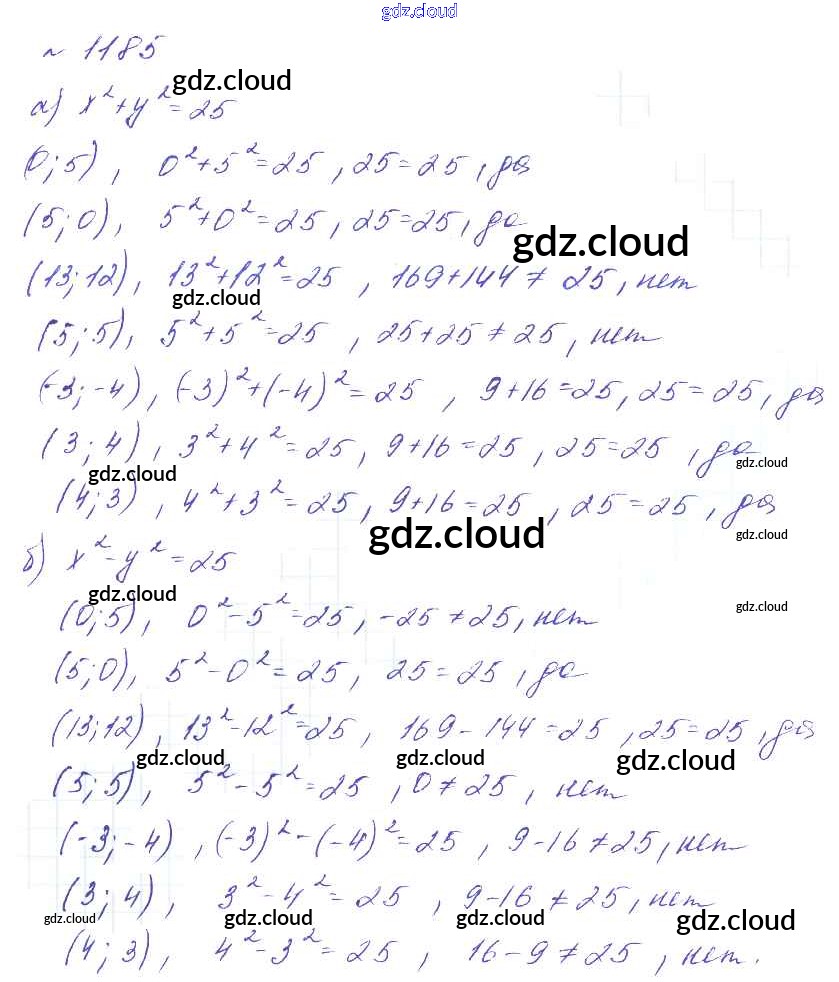 gdz.cloud
№ 1185
gdz.cloud
а) x²+y²=25
0; 5), 0²+5²=25, 25=25, да
(5; 0), 5²+0²=25, 25=25, да
gdz.cloud
(13; 12), 13²+12²=25, 169+144≠25, нет
gdz.cloud
(5; 5), 5²+5²=25, 25+25≠25, нет
(-3; -4), (-3)²+(-4)²=25, 9+16=25, 25=25, да
(3; 4), 3²+4²=25, 9+16=25, 25=25, да
gdz.cloud gdz.cloud
(4; 3), 4²+3²=25, 9+16=25, 25=25, да
gdz.cloud gdz.cloud
б) x²-y²=25
gdz.cloud gdz.cloud
(0; 5), 0²-5²=25, -25≠25, нет
(5; 0), 5²-0²=25, 25=25, да
(13; 12), 13²-12²=25, 169-144=25, 25=25, да
gdz.cloud gdz.cloud gdz.cloud
(5; 5), 5²-5²=25, 0≠25, нет
(-3; -4), (-3)²-(-4)²=25, 9-16≠25, нет
(3; 4), 3²-4²=25, 9-16≠25, нет
gdz.cloud gdz.cloud gdz.cloud gdz.cloud
(4; 3), 4²-3²=25, 16-9≠25, нет.